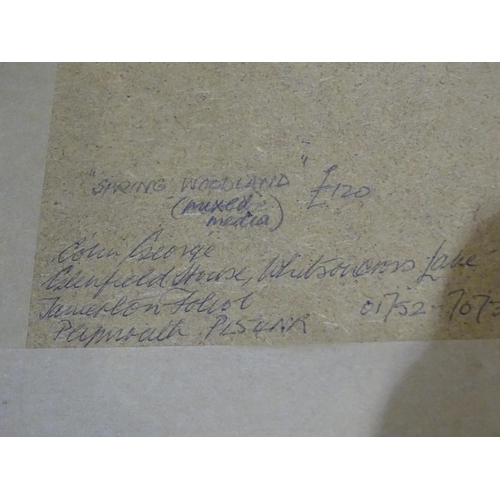 "SPRING WOODLAND" £120
(mixed
media)
Colin George
Glenfield House, Whitsoncross Lane
Tamerton Foliot 01752-7073
Plymouth PL5 4NR